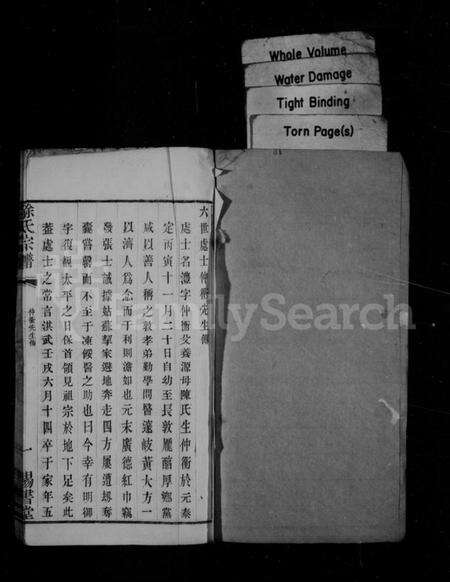 Whole Volume
Water Damage
Tight Binding
Torn Page(s)
FamilySearch
六世處士仲衡先生傳
處士名澧字仲衡父養源母陳氏生仲衡於元泰
定丙寅十一月二十日自幼至長敦龐醇厚鄉黨
咸以善人稱之敦孝弟勤學問醫遠岐黃大方一
以濟人爲念而于利則澹如也元末廣德紅巾竊
發張士誠據姑蘇挈家避地奔走四方屢遭刼奪
囊嘗罄而不至于凍餒醫之助也曰今幸有明御
宇復覩太平之日保首領見祖宗於地下足矣此
蓋處士之常言洪武壬戌六月十四卒于家年五
徐氏宗譜
仲衡先生傳
一
錫書堂